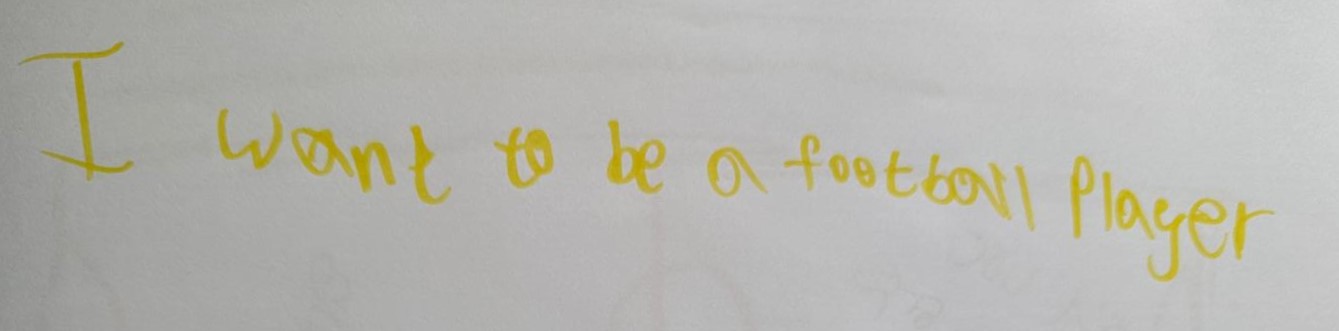 I want to be a football Player